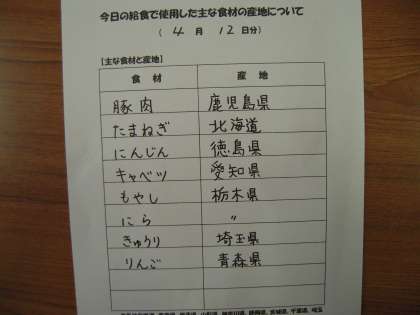 今日の給食で使用した主な食材の産地について
( 4 月 12 日分)
【主な食材と産地】
食材 産地
豚肉 鹿児島県
たまねぎ 北海道
にんじん 徳島県
キャベツ 愛知県
もやし 栃木県
にら 〃
きゅうり 埼玉県
りんご 青森県